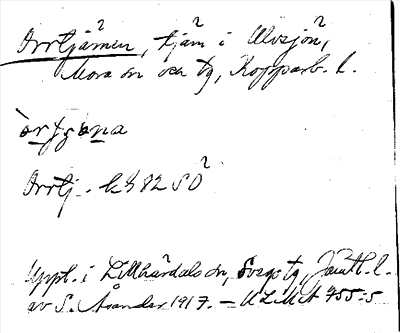 Orrtjärnen, tjärn i Ulvsjön,
Mora sn och tg, Kopparb. l.
òrtjǝna
Orrtj. k 382 SO
Uppt. i Lillhärdals sn, Svegs tg, Jämtl. l.
av S. Åsander 1917. — ULMA 755:5